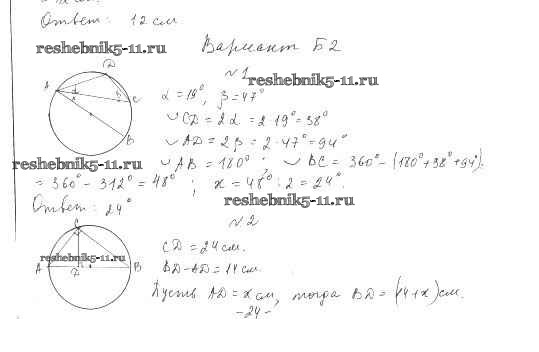 Ответ: 12 см
reshebnik5-11.ru
Вариант Б2
№1
reshebnik5-11.ru
A D C B
α = 19°, β = 47°
◡CD = 2α = 2·19° = 38°
◡AD = 2β = 2·47° = 94°
reshebnik5-11.ru
◡AB = 180°; ◡BC = 360° - (180° + 38° + 94°).
= 360° - 312° = 48°; x = 48° : 2 = 24°.
reshebnik5-11.ru
Ответ: 24°
№2
C
CD = 24 см.
reshebnik5-11.ru
A D B
BD - AD = 14 см.
Пусть AD = x см, тогда BD = (14 + x) см.
-24-